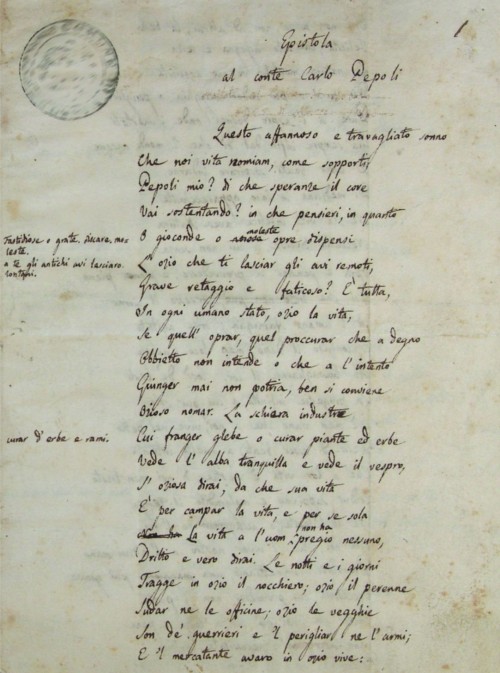 1
Epistola
al conte Carlo Pepoli
Questo affannoso e travagliato sonno
Che noi vita nomiam, come sopporti,
Pepoli mio? di che speranze il core
Vai sostentando? in che pensieri, in quanto
O gioconde o moleste opre dispensi
Fastidiose o grate, discare, moleste.
L'ozio che ti lasciar gli avi remoti,
a te gli antichi avi lasciaro.
lontani.
Grave retaggio e faticoso? È tutta,
In ogni umano stato, ozio la vita,
Se quell' oprar, quel proccurar che a degno
Obbietto non intende o che a l'intento
Giunger mai non potria, ben si conviene
Ozioso nomar. La schiera industre
curar d'erbe e rami.
Cui franger glebe o curar piante ed erbe
Vede l'alba tranquilla e vede il vespro,
S'oziosa dirai, da che sua vita
È per campar la vita, e per se sola
La vita a l'uom non ha pregio nessuno,
Dritto e vero dirai. Le notti e i giorni
Tragge in ozio il nocchiero; ozio il perenne
Sudar ne le officine; ozio le vegghie
Son de' guerrieri e 'l perigliar ne l'armi;
E 'l mercatante avaro in ozio vive: